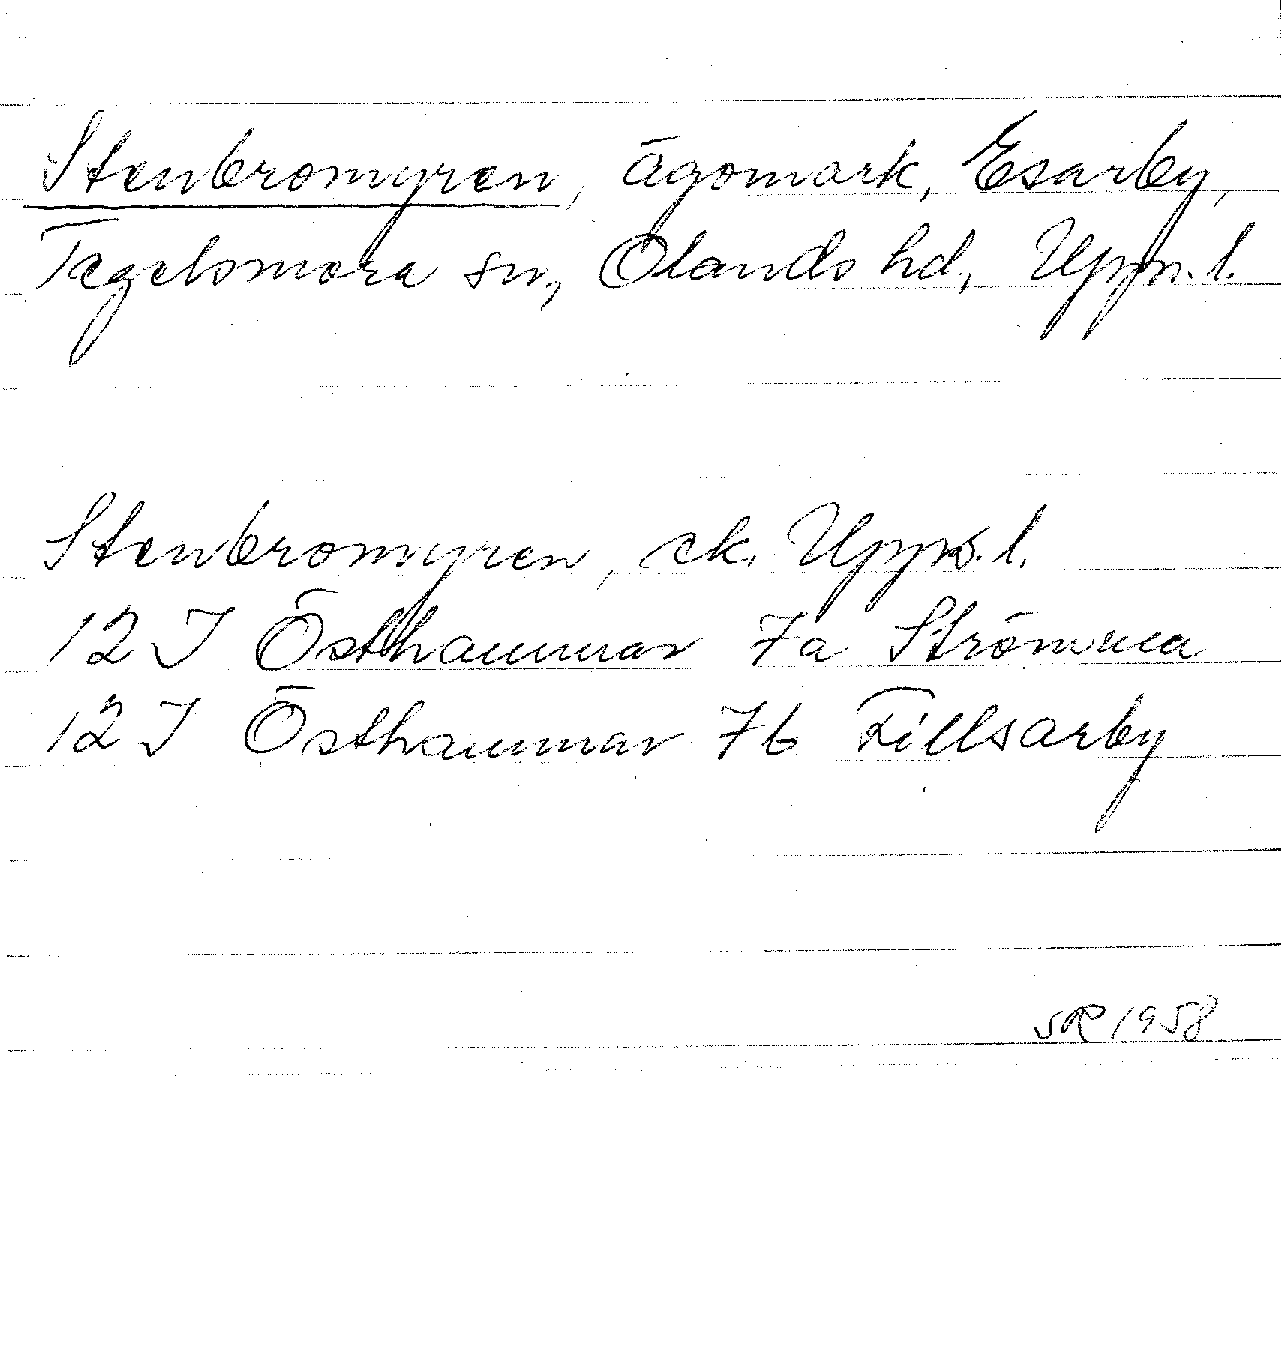 Stenbromyren, ägomark, Esarby,
Tegelsmora sn, Olands hd, Upps. l.
Stenbromyren, ek. Upps. l.
12 I Östhammar 7a Strömma
12 I Östhammar 7b Fillsarby
SR 1958